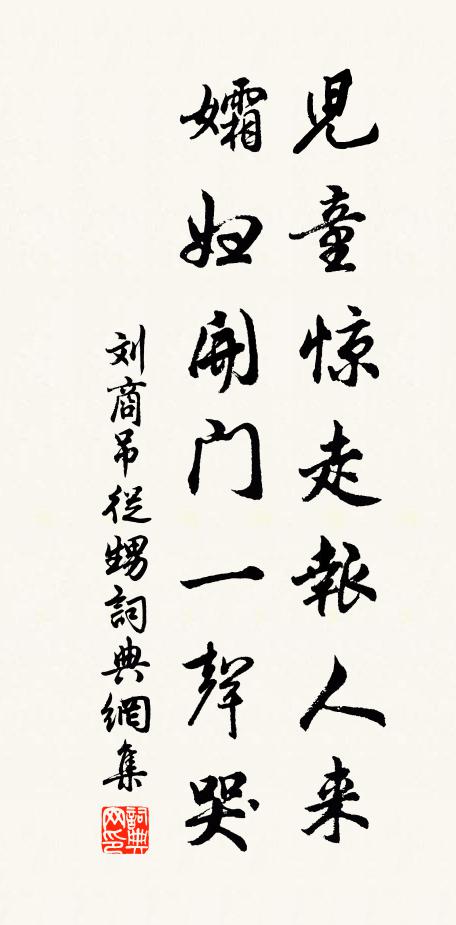 児童惊走報人来
孀妇開门一聲哭
刘商吊從甥詞典網集
詞典网印